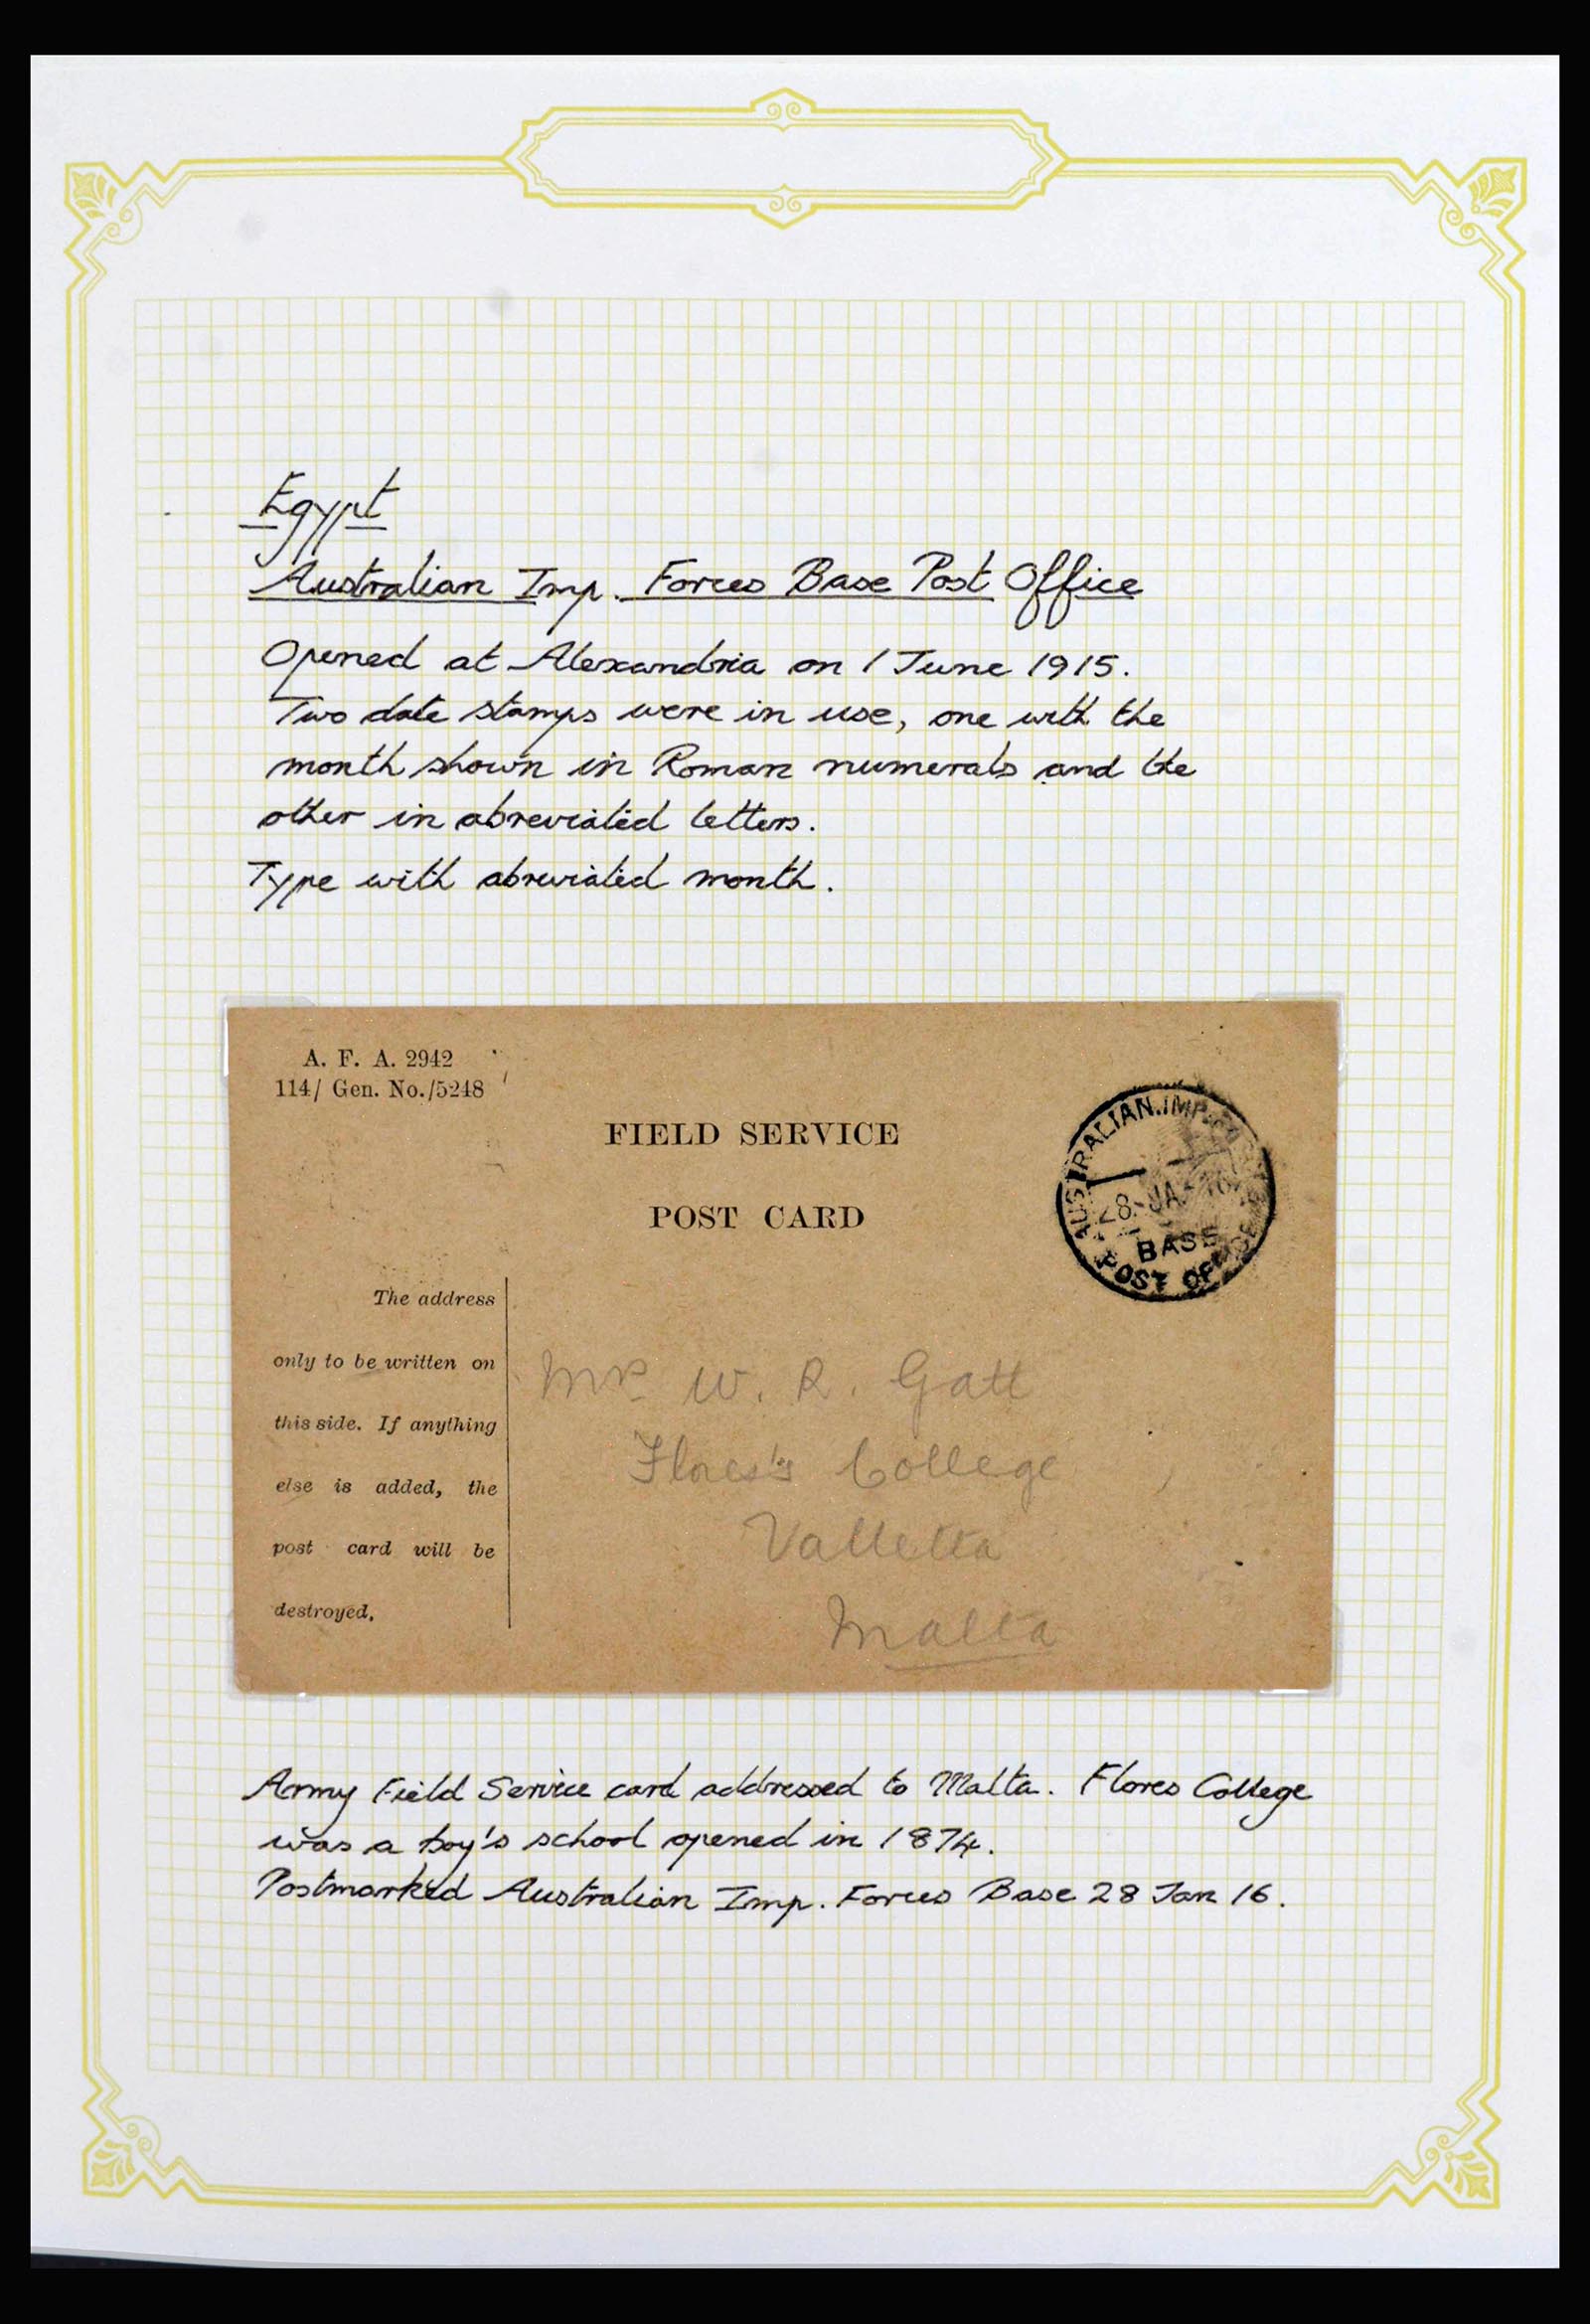 Egypt
Australian Imp. Forces Base Post Office
Opened at Alexandria on 1 June 1915.
Two date stamps were in use, one with the
month shown in Roman numerals and the
other in abreviated letters.
Type with abreviated month.
A. F. A. 2942
114/ Gen. No./5248
FIELD SERVICE
POST CARD
AUSTRALIAN.IMP.
28-JA-16
BASE
POST OFFICE
The address
only to be written on
this side. If anything
else is added, the
post card will be
destroyed.
Mr. W. R. Gatt
Flores's College
Valletta
Malta
Army Field Service card addressed to Malta. Flores College
was a boy's school opened in 1874.
Postmarked Australian Imp. Forces Base 28 Jan 16.